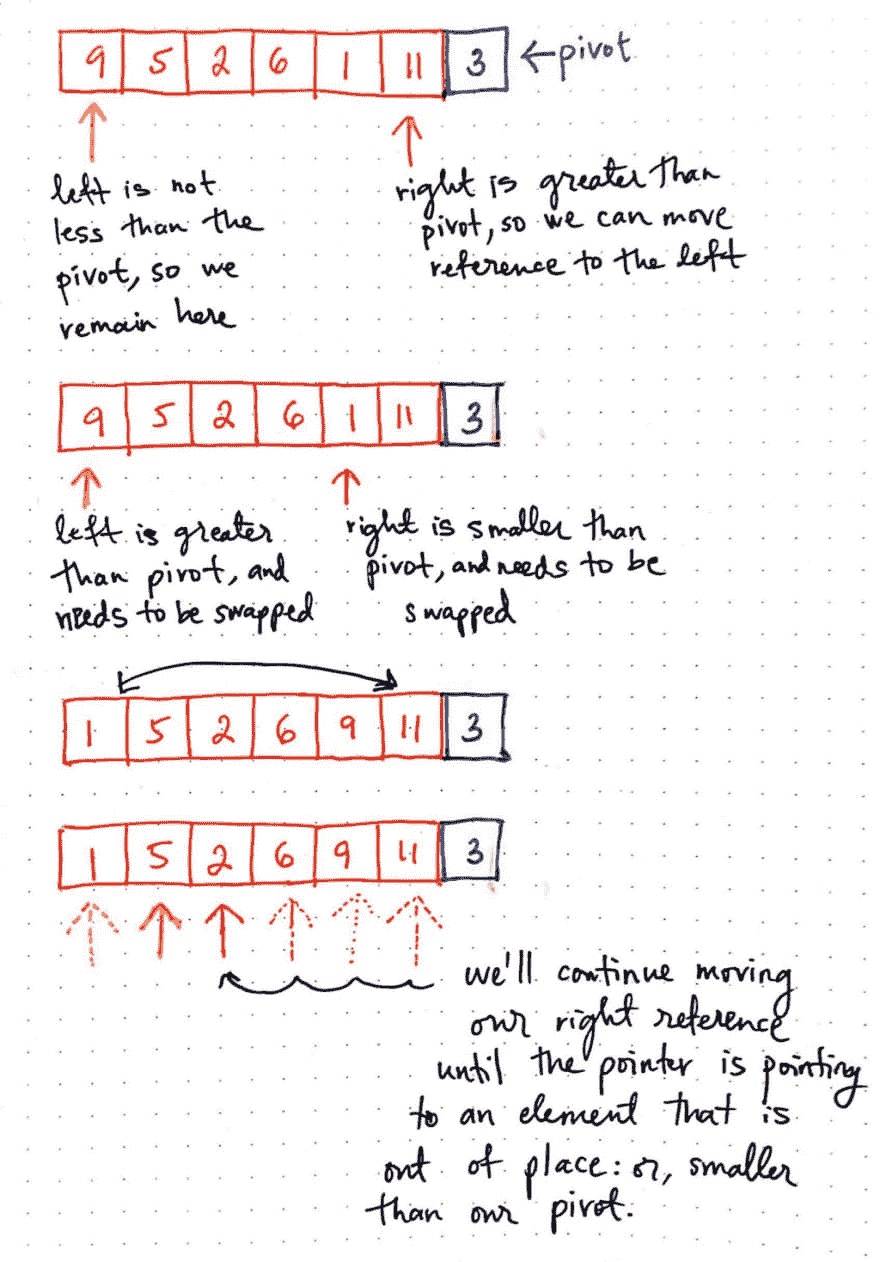 9 5 2 6 1 11 3 ←pivot
left is not
less than the
pivot, so we
remain here
right is greater than
pivot, so we can move
reference to the left
9 5 2 6 1 11 3
left is greater
than pivot, and
needs to be swapped
right is smaller than
pivot, and needs to be
swapped
1 5 2 6 9 11 3
1 5 2 6 9 11 3
we'll continue moving
our right reference
until the pointer is pointing
to an element that is
out of place: or, smaller
than our pivot.